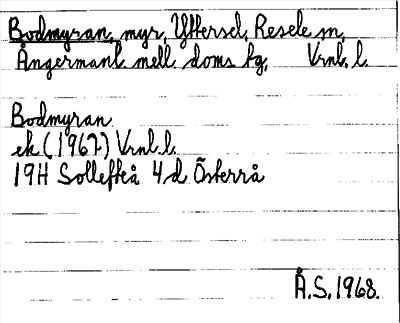 Bodmyran, myr, Yttersel, Resele sn,
Ångermanl. mell. doms. fg, Vrnl. l.
Bodmyran
ek (1967) Vrnl. l.
19H Sollefteå 4 d Österrå
Å.S. 1968.